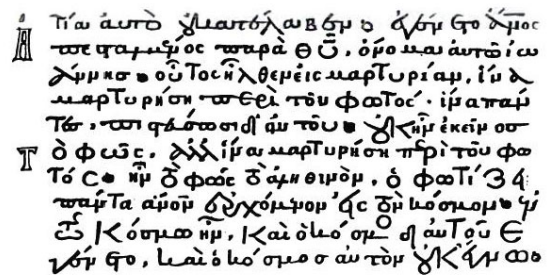 τία αὐτὸ οὐ κατέλαβεν· ἐγένετο ἄνος
ἀπεσταλμένος παρὰ θῦ, ὄνομα αὐτῶ ἰω
άννης· οὗτος ἦλθεν εἰς μαρτυρίαν, ἵνα
μαρτυρήση περὶ τοῦ φωτός· ἵνα πάν
τες πιστεύσωσι δι' αὐτοῦ· οὐκ ἦν ἐκεῖνος
τὸ φῶς, ἀλλ' ἵνα μαρτυρήση περὶ τοῦ φω
τός· ἦν τὸ φῶς τὸ ἀληθινὸν, ὃ φωτίζει
πάντα ἄνον ἐρχόμενον εἰς τὸν κόσμον· ἐν
τῶ κόσμω ἦν, καὶ ὁ κόσμος δι' αὐτοῦ ἐ
γένετο, καὶ ὁ κόσμος αὐτὸν οὐκ ἔγνω·